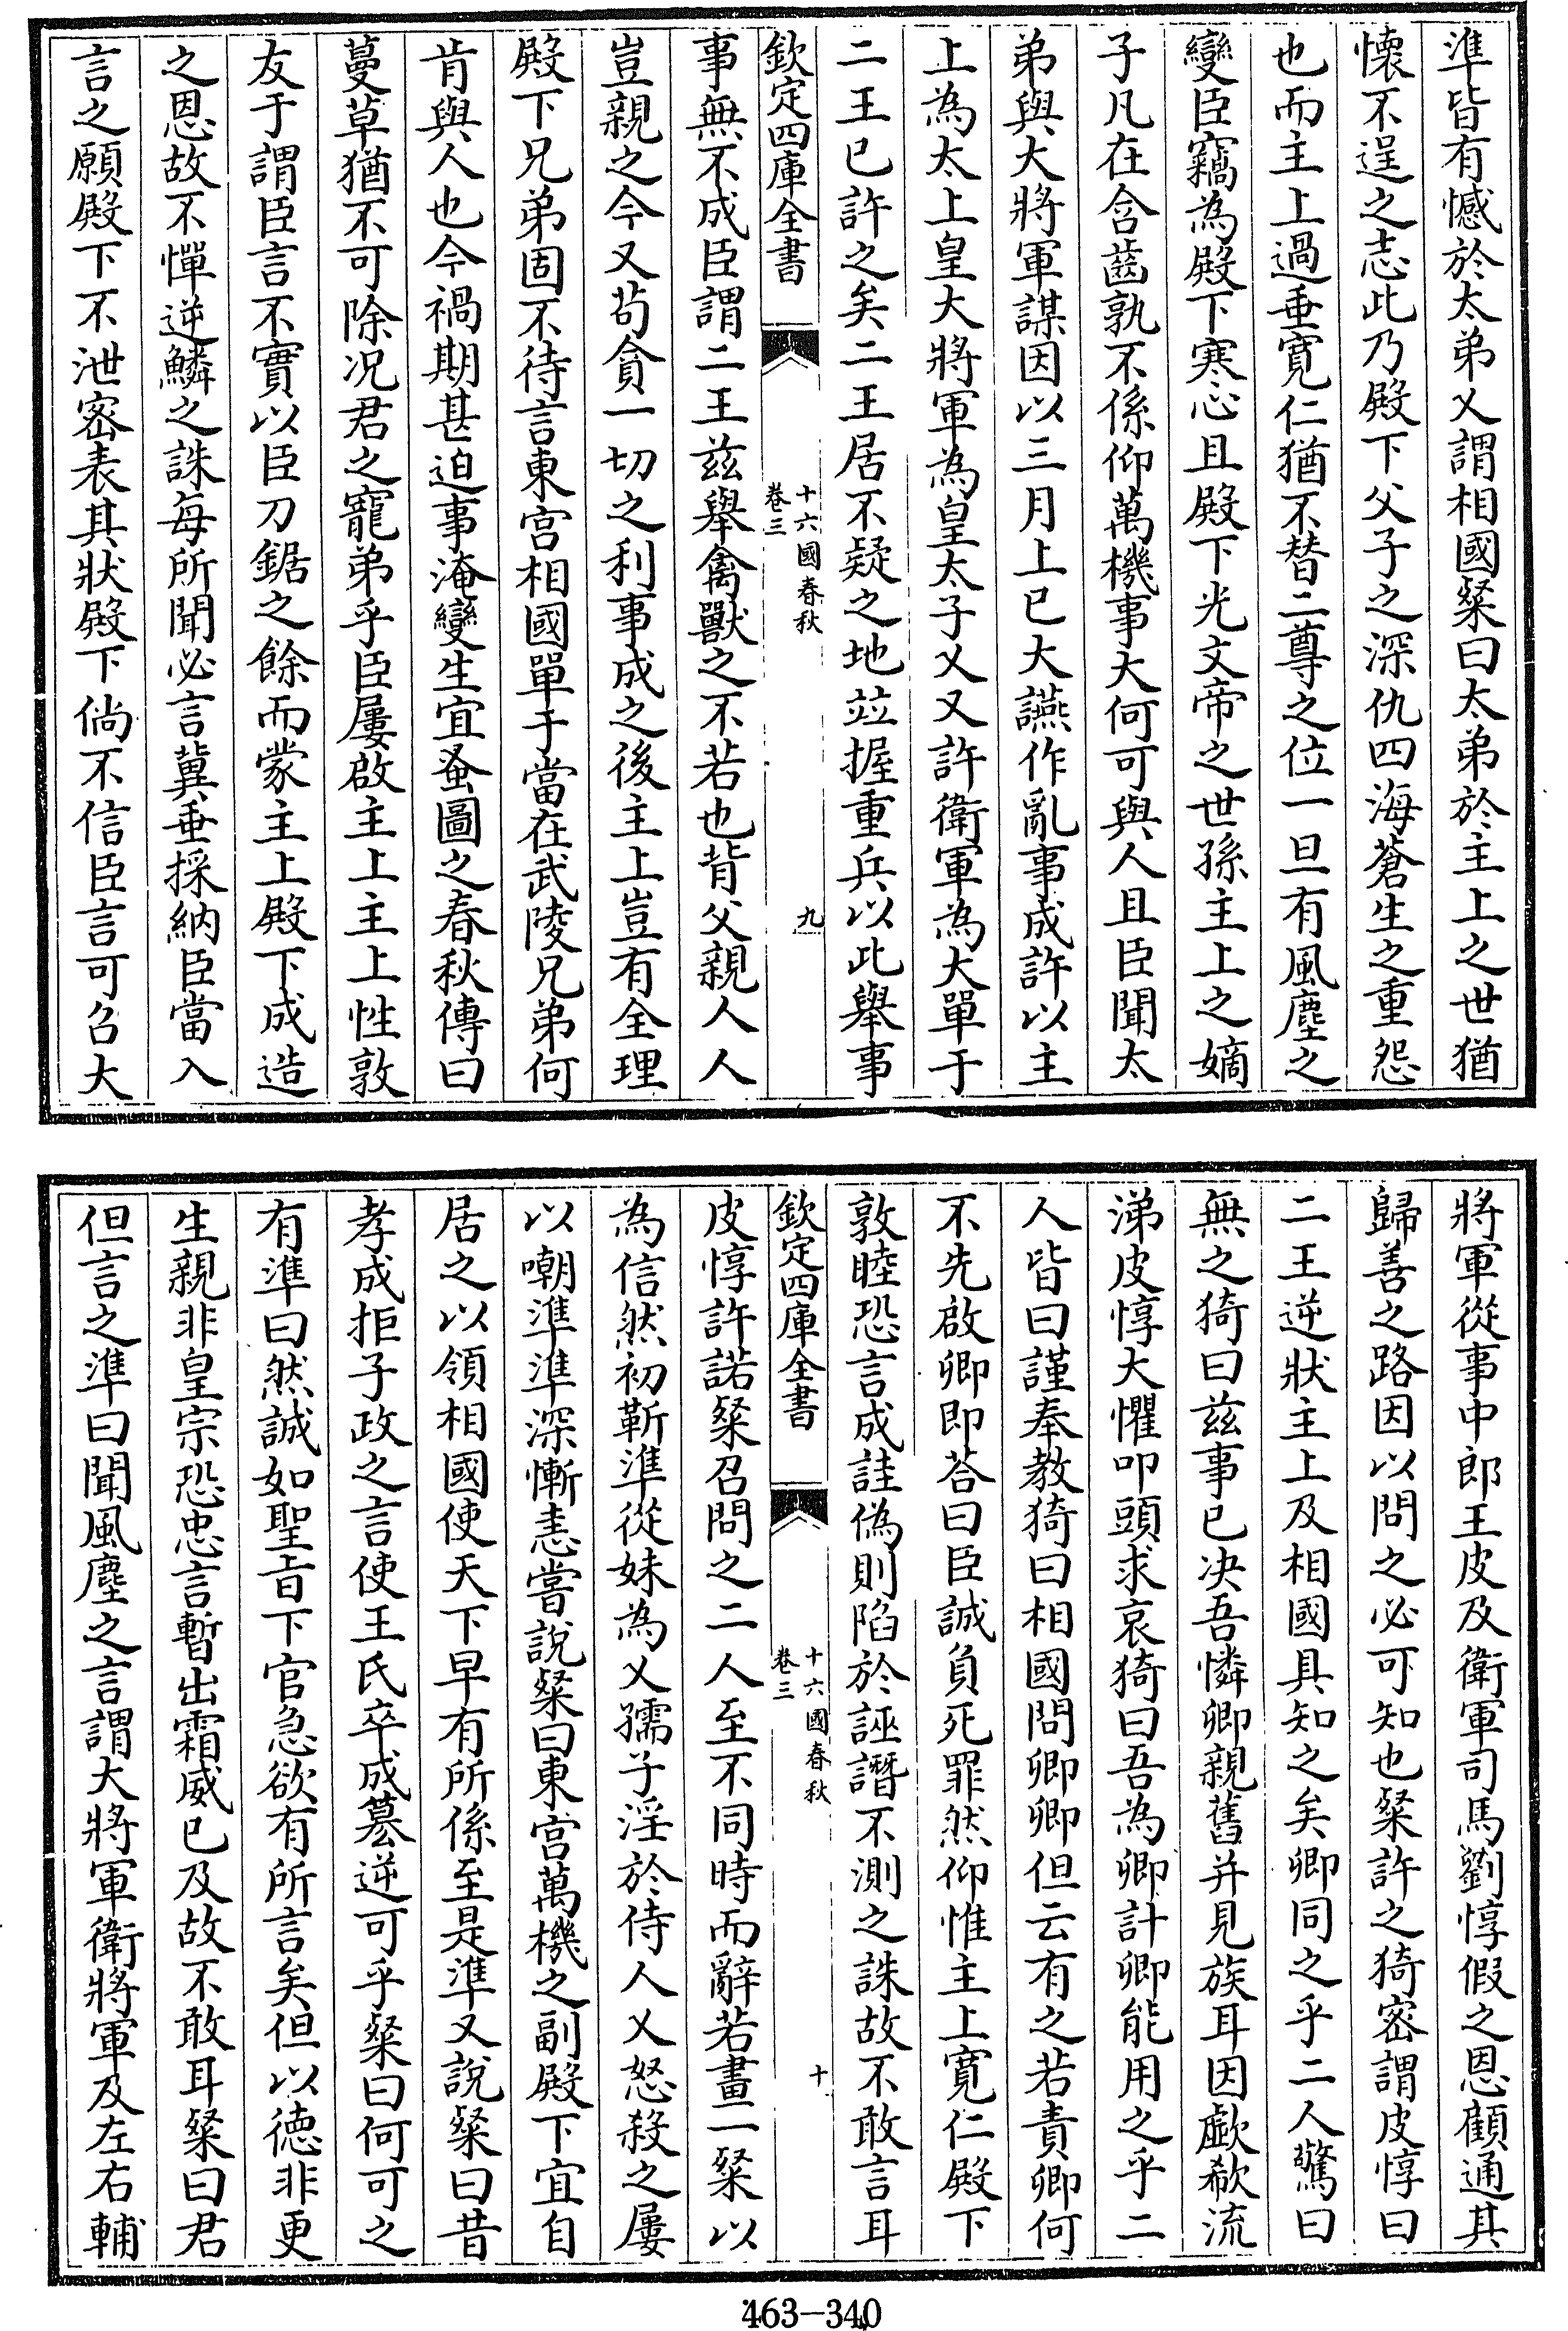 準皆有憾於太弟乂謂相國粲曰太弟於主上之世猶
懷不逞之志此乃殿下父子之深仇四海蒼生之重怨
也而主上過垂寛仁猶不替二尊之位一旦有風塵之
變臣竊為殿下寒心且殿下光文帝之世孫主上之嫡
子凡在含齒孰不係仰萬機事大何可與人且臣聞太
弟與大將軍謀因以三月上巳大讌作亂事成許以主
上為太上皇大將軍為皇太子乂又許衛軍為大單于
二王已許之矣二王居不疑之地竝握重兵以此舉事
欽定四庫全書
十六國春秋
卷三
九
事無不成臣謂二王兹舉禽獸之不若也背父親人人
豈親之今又苟貪一切之利事成之後主上豈有全理
殿下兄弟固不待言東宫相國單于當在武陵兄弟何
肯與人也今禍期甚迫事淹變生宜蚤圖之春秋傳曰
蔓草猶不可除况君之寵弟乎臣屢啟主上主上性敦
友于謂臣言不實以臣刀鋸之餘而蒙主上殿下成造
之恩故不憚逆鱗之誅每所聞必言冀垂採納臣當入
言之願殿下不泄密表其狀殿下倘不信臣言可召大
將軍從事中郎王皮及衛軍司馬劉惇假之恩顧通其
歸善之路因以問之必可知也粲許之猗密謂皮惇曰
二王逆狀主上及相國具知之矣卿同之乎二人驚曰
無之猗曰兹事已决吾憐卿親舊并見族耳因歔欷流
涕皮惇大懼叩頭求哀猗曰吾為卿計卿能用之乎二
人皆曰謹奉教猗曰相國問卿卿但云有之若責卿何
不先啟卿即荅曰臣誠負死罪然仰惟主上寛仁殿下
敦睦恐言成詿偽則陷於誣譖不測之誅故不敢言耳
欽定四庫全書
十六國春秋
卷三
十
皮惇許諾粲召問之二人至不同時而辭若畫一粲以
為信然初靳準從妹為乂孺子淫於侍人乂怒殺之屢
以嘲準準深慚恚嘗説粲曰東宫萬機之副殿下宜自
居之以領相國使天下早有所係至是準又説粲曰昔
孝成拒子政之言使王氏卒成簒逆可乎粲曰何可之
有準曰然誠如聖旨下官急欲有所言矣但以徳非更
生親非皇宗恐忠言暫出霜威已及故不敢耳粲曰君
但言之準曰聞風塵之言謂大將軍衛將軍及左右輔
463-340